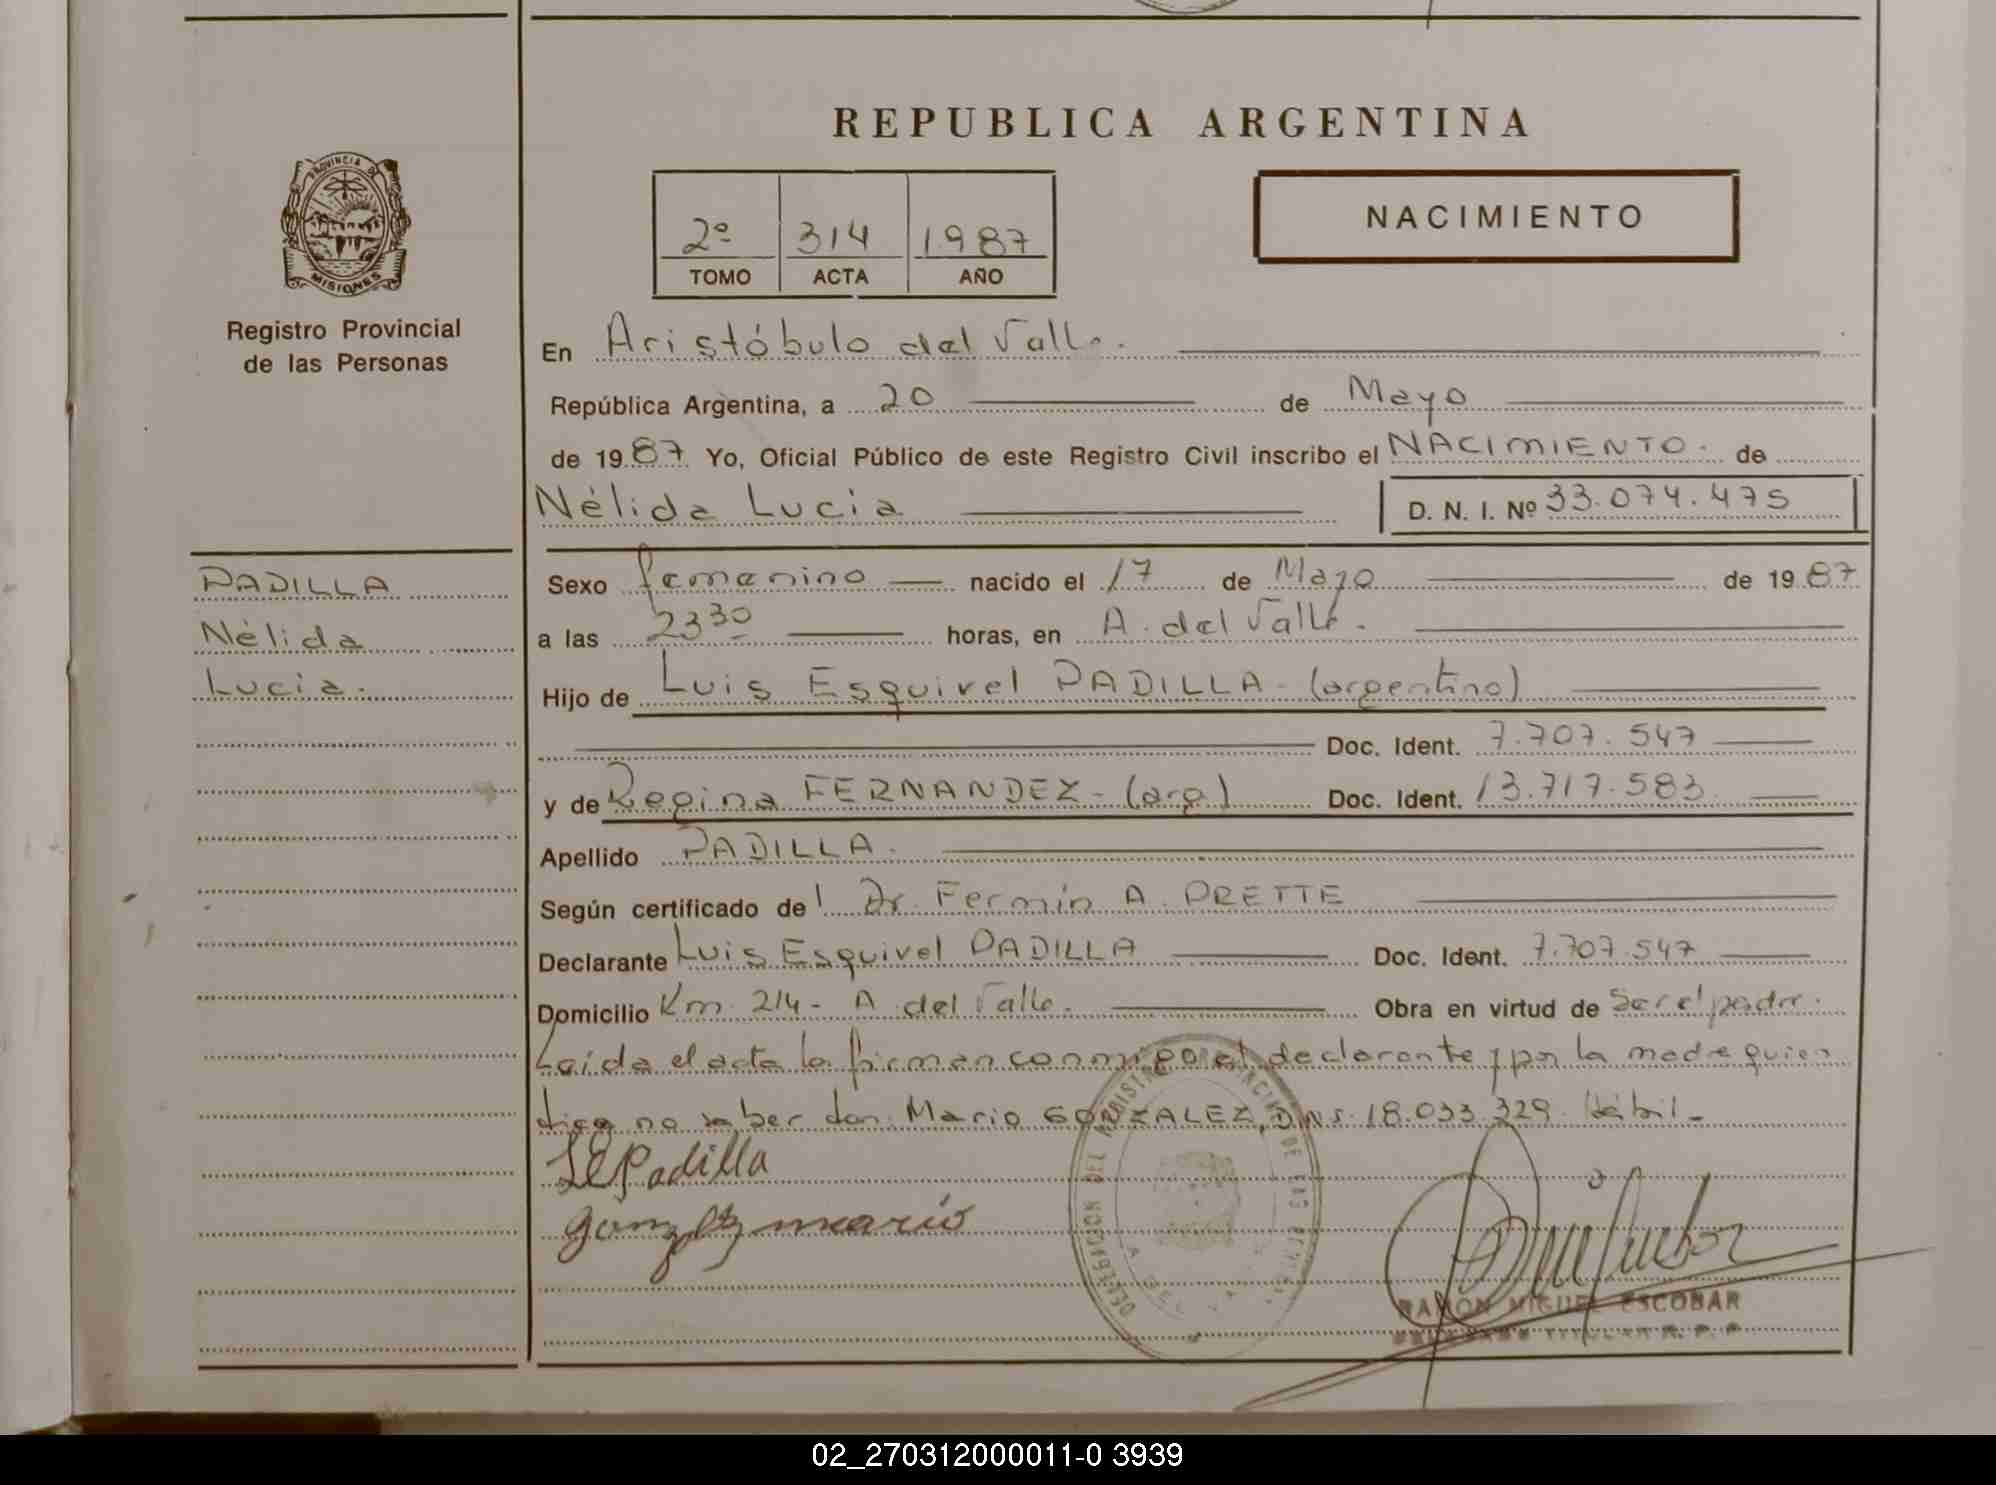 REPUBLICA ARGENTINA
PROVINCIA DE
MISIONES
Registro Provincial
de las Personas
2º 314 1987
TOMO ACTA AÑO
NACIMIENTO
En Aristóbulo del Valle.
República Argentina, a 20 de Mayo
de 1987 Yo, Oficial Público de este Registro Civil inscribo el NACIMIENTO. de
Nélida Lucia D. N. I. Nº 33.074.475
PADILLA
Nélida
Lucia.
Sexo femenino nacido el 17 de Mayo de 1987
a las 23 30 horas, en A. del Valle.
Hijo de Luis Esquivel PADILLA - (argentino)
Doc. Ident. 7.707.547
y de Regina FERNANDEZ - (arg) Doc. Ident. 13.717.583
Apellido PADILLA.
Según certificado del Dr. Fermín A. PRETTE
Declarante Luis Esquivel PADILLA Doc. Ident. 7.707.547
Domicilio Km 214 - A del Valle. Obra en virtud de ser el padre.
Leída el acta la firman conmigo el declarante y por la madre quien
dice no saber don Mario GONZALEZ, DNI. 18.033.329. Hábil -
LEPadilla
Gonzalez mario
DELEGACION DEL REGISTRO PROVINCIAL DE LAS PERSONAS
RAMON MIGUEL ESCOBAR
DELEGADO TITULAR R. P. P.
02_270312000011-0 3939